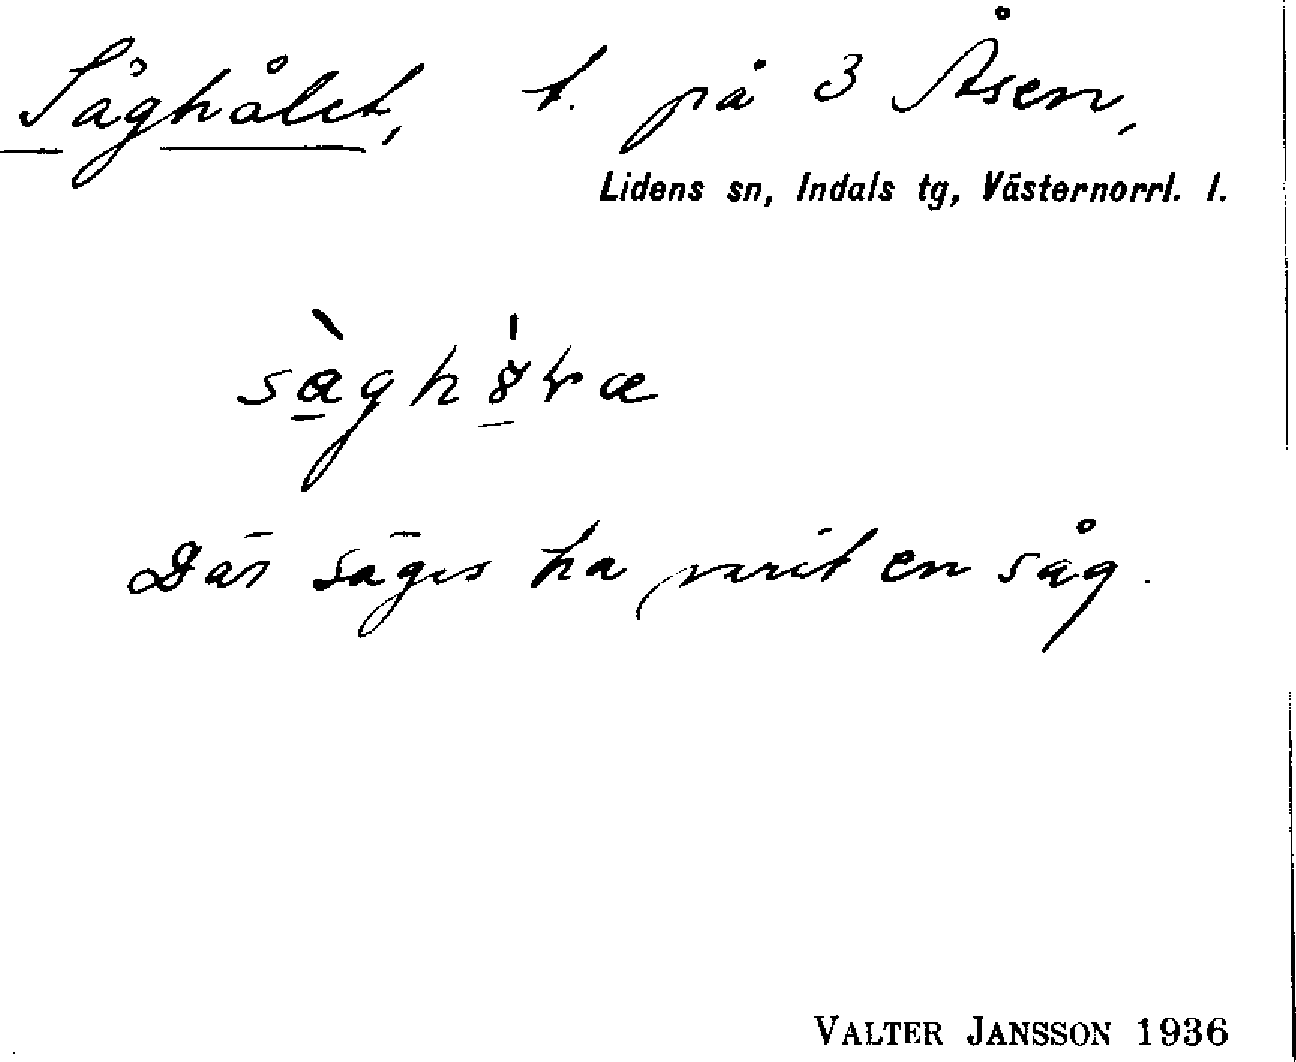 Såghålet, t. på 3 Åsen,
Lidens sn, Indals tg, Västernorrl. l.
Där säges ha varit en såg.
VALTER JANSSON 1936